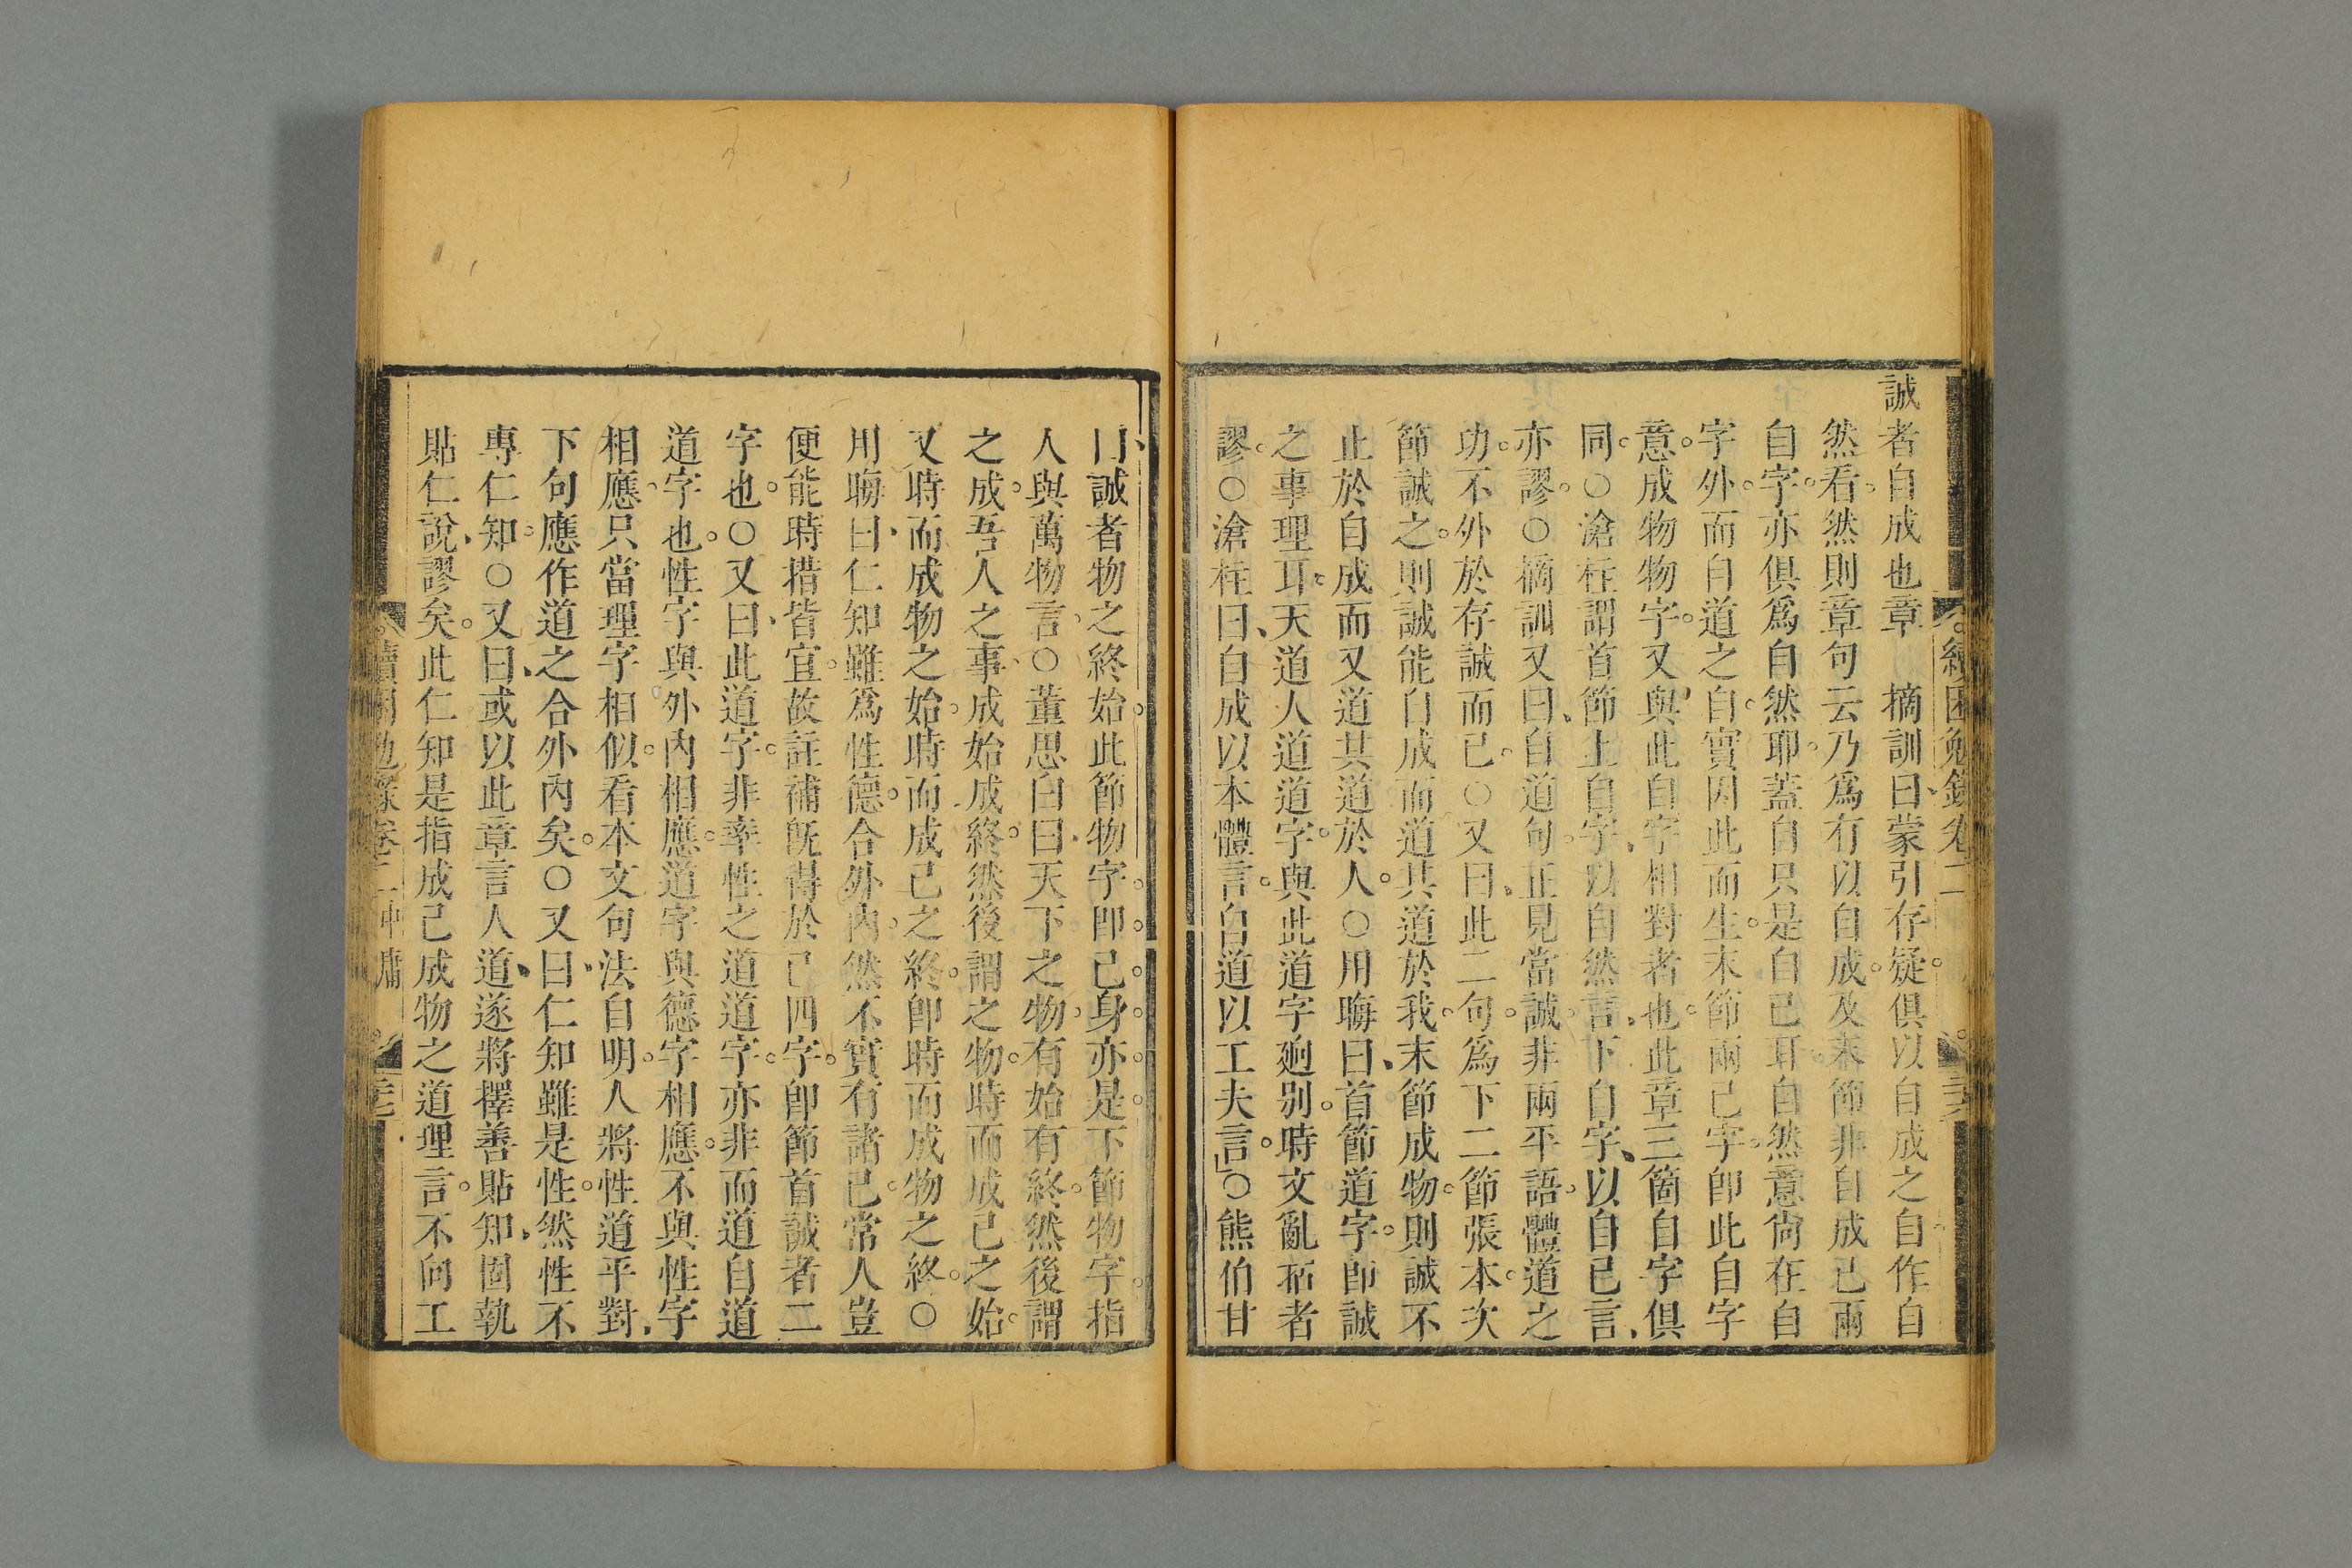 續困勉錄卷二
誠者自成也章　摘訓曰蒙引存疑俱以自成之自作自
然看然則章句云乃爲有以自成及末節非自成己兩
自字亦俱爲自然耶蓋自只是自己耳自然意尙在自
字外而自道之自實因此而生末節兩己字卽此自字
意成物物字又與此自字相對者也此章三箇自字俱
同○滄柱謂首節上自字以自然言下自字以自己言
亦謬○摘訓又曰自道句正見當誠非兩平語體道之
功不外於存誠而已○又曰此二句爲下二節張本次
節誠之則誠能自成而道其道於我末節成物則誠不
止於自成而又道其道於人○用晦曰首節道字卽誠
之事理耳天道人道道字與此道字廻别時文亂拓者
謬○滄柱曰自成以本體言自道以工夫言○熊伯甘
曰誠者物之終始此節物字卽己身亦是下節物字指
人與萬物言○董思白曰天下之物有始有終然後謂
之成吾人之事成始成終然後謂之物時而成己之始
又時而成物之始時而成己之終卽時而成物之終○
用晦曰仁知雖爲性德合外內然不實有諸己常人豈
便能時措皆宜故註補旣得於己四字卽節首誠者二
字也○又曰此道字非率性之道道字亦非而道自道
道字也性字與外內相應道字與德字相應不與性字
相應只當理字相似看本文句法自明人將性道平對
下句應作道之合外內矣○又曰仁知雖是性然性不
專仁知○又曰或以此章言人道遂將擇善貼知固執
貼仁說謬矣此仁知是指成己成物之道理言不向工
續困勉錄卷二中庸